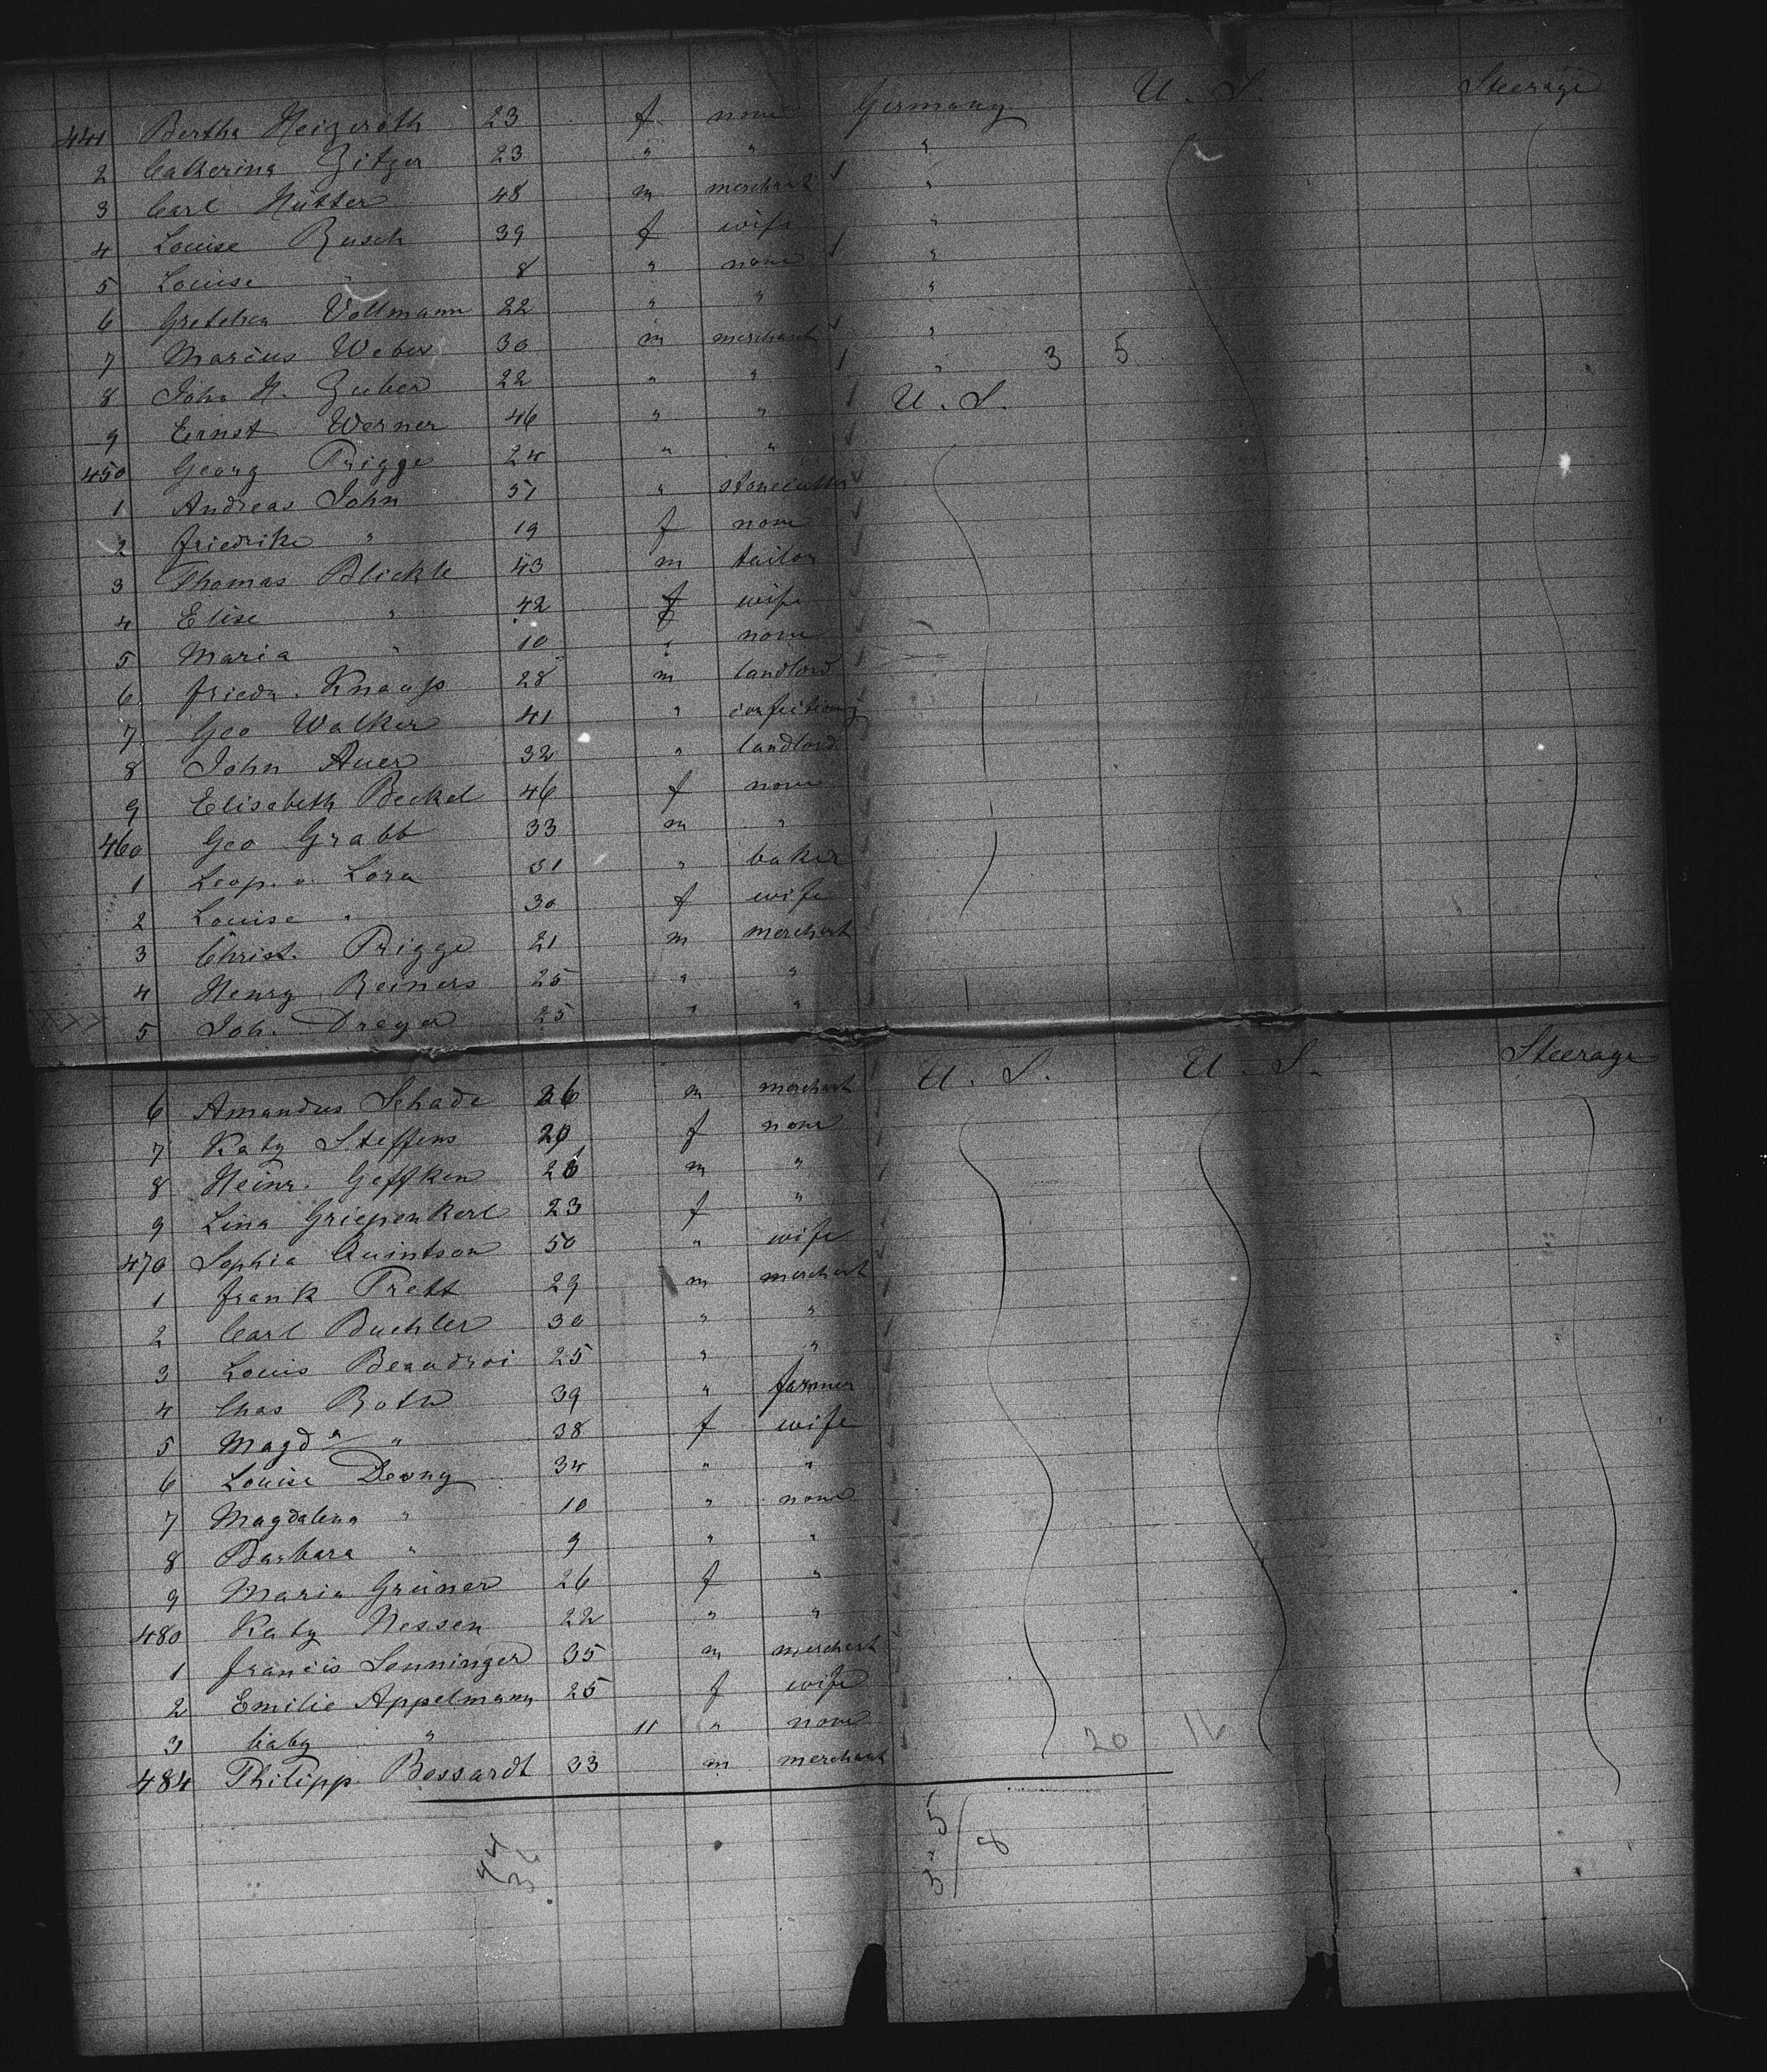 441 Bertha Heizeroth 23 f none Germany U. S. Steerage
2 Catherina Zitzer 23 " " "
3 Carl Hütter 48 m merchant "
4 Louise Busch 39 f wife "
5 Louise " 8 " none "
6 Gretchen Vollmann 22 " " "
7 Marcus Weber 30 m merchant "
8 John H. Zuber 22 " " " 3 5
9 Ernst Werner 46 " " U. S.
450 Georg Prigge 24 " "
1 Andreas John 51 " stonecutter
2 Friedrike " 19 f none
3 Thomas Blickle 43 m tailor
4 Elise " 42 f wife
5 Maria " 10 " none
6 Friedr. Knaup 28 m landlord
7 Geo Walker 41 "
8 John Auer 32 " landlord
9 Elisabeth Beckel 46 f none
460 Geo Grabb 33 m "
1 Leop. v. Lora 31 " baker
2 Louise " 30 f wife
3 Christ. Prigge 21 m merchant
4 Henry Reiners 25 " "
5 Joh. Dreyer 25 " "
6 Amandus Schade 26 m merchant U. S. U. S. Steerage
7 Katy Steffens 20 f none
8 Heinr. Geffken 26 m "
9 Lina Griepenkerl 23 f "
470 Sophia Quintson 50 " wife
1 Frank Prett 29 m merchant
2 Carl Buehler 30 " "
3 Louis Beaudroi 25 " "
4 Chas Roth 39 " farmer
5 Magda " 38 f wife
6 Louise Deong 34 " "
7 Magdalena " 10 " none
8 Barbara " 9 " "
9 Maria Greiner 26 f "
480 Katy Hessen 22 " "
1 Francis Senninger 35 m merchant
2 Emilie Appelmann 25 f wife
3 baby " 11 " none 20 16
484 Philipp Bossardt 33 m merchant